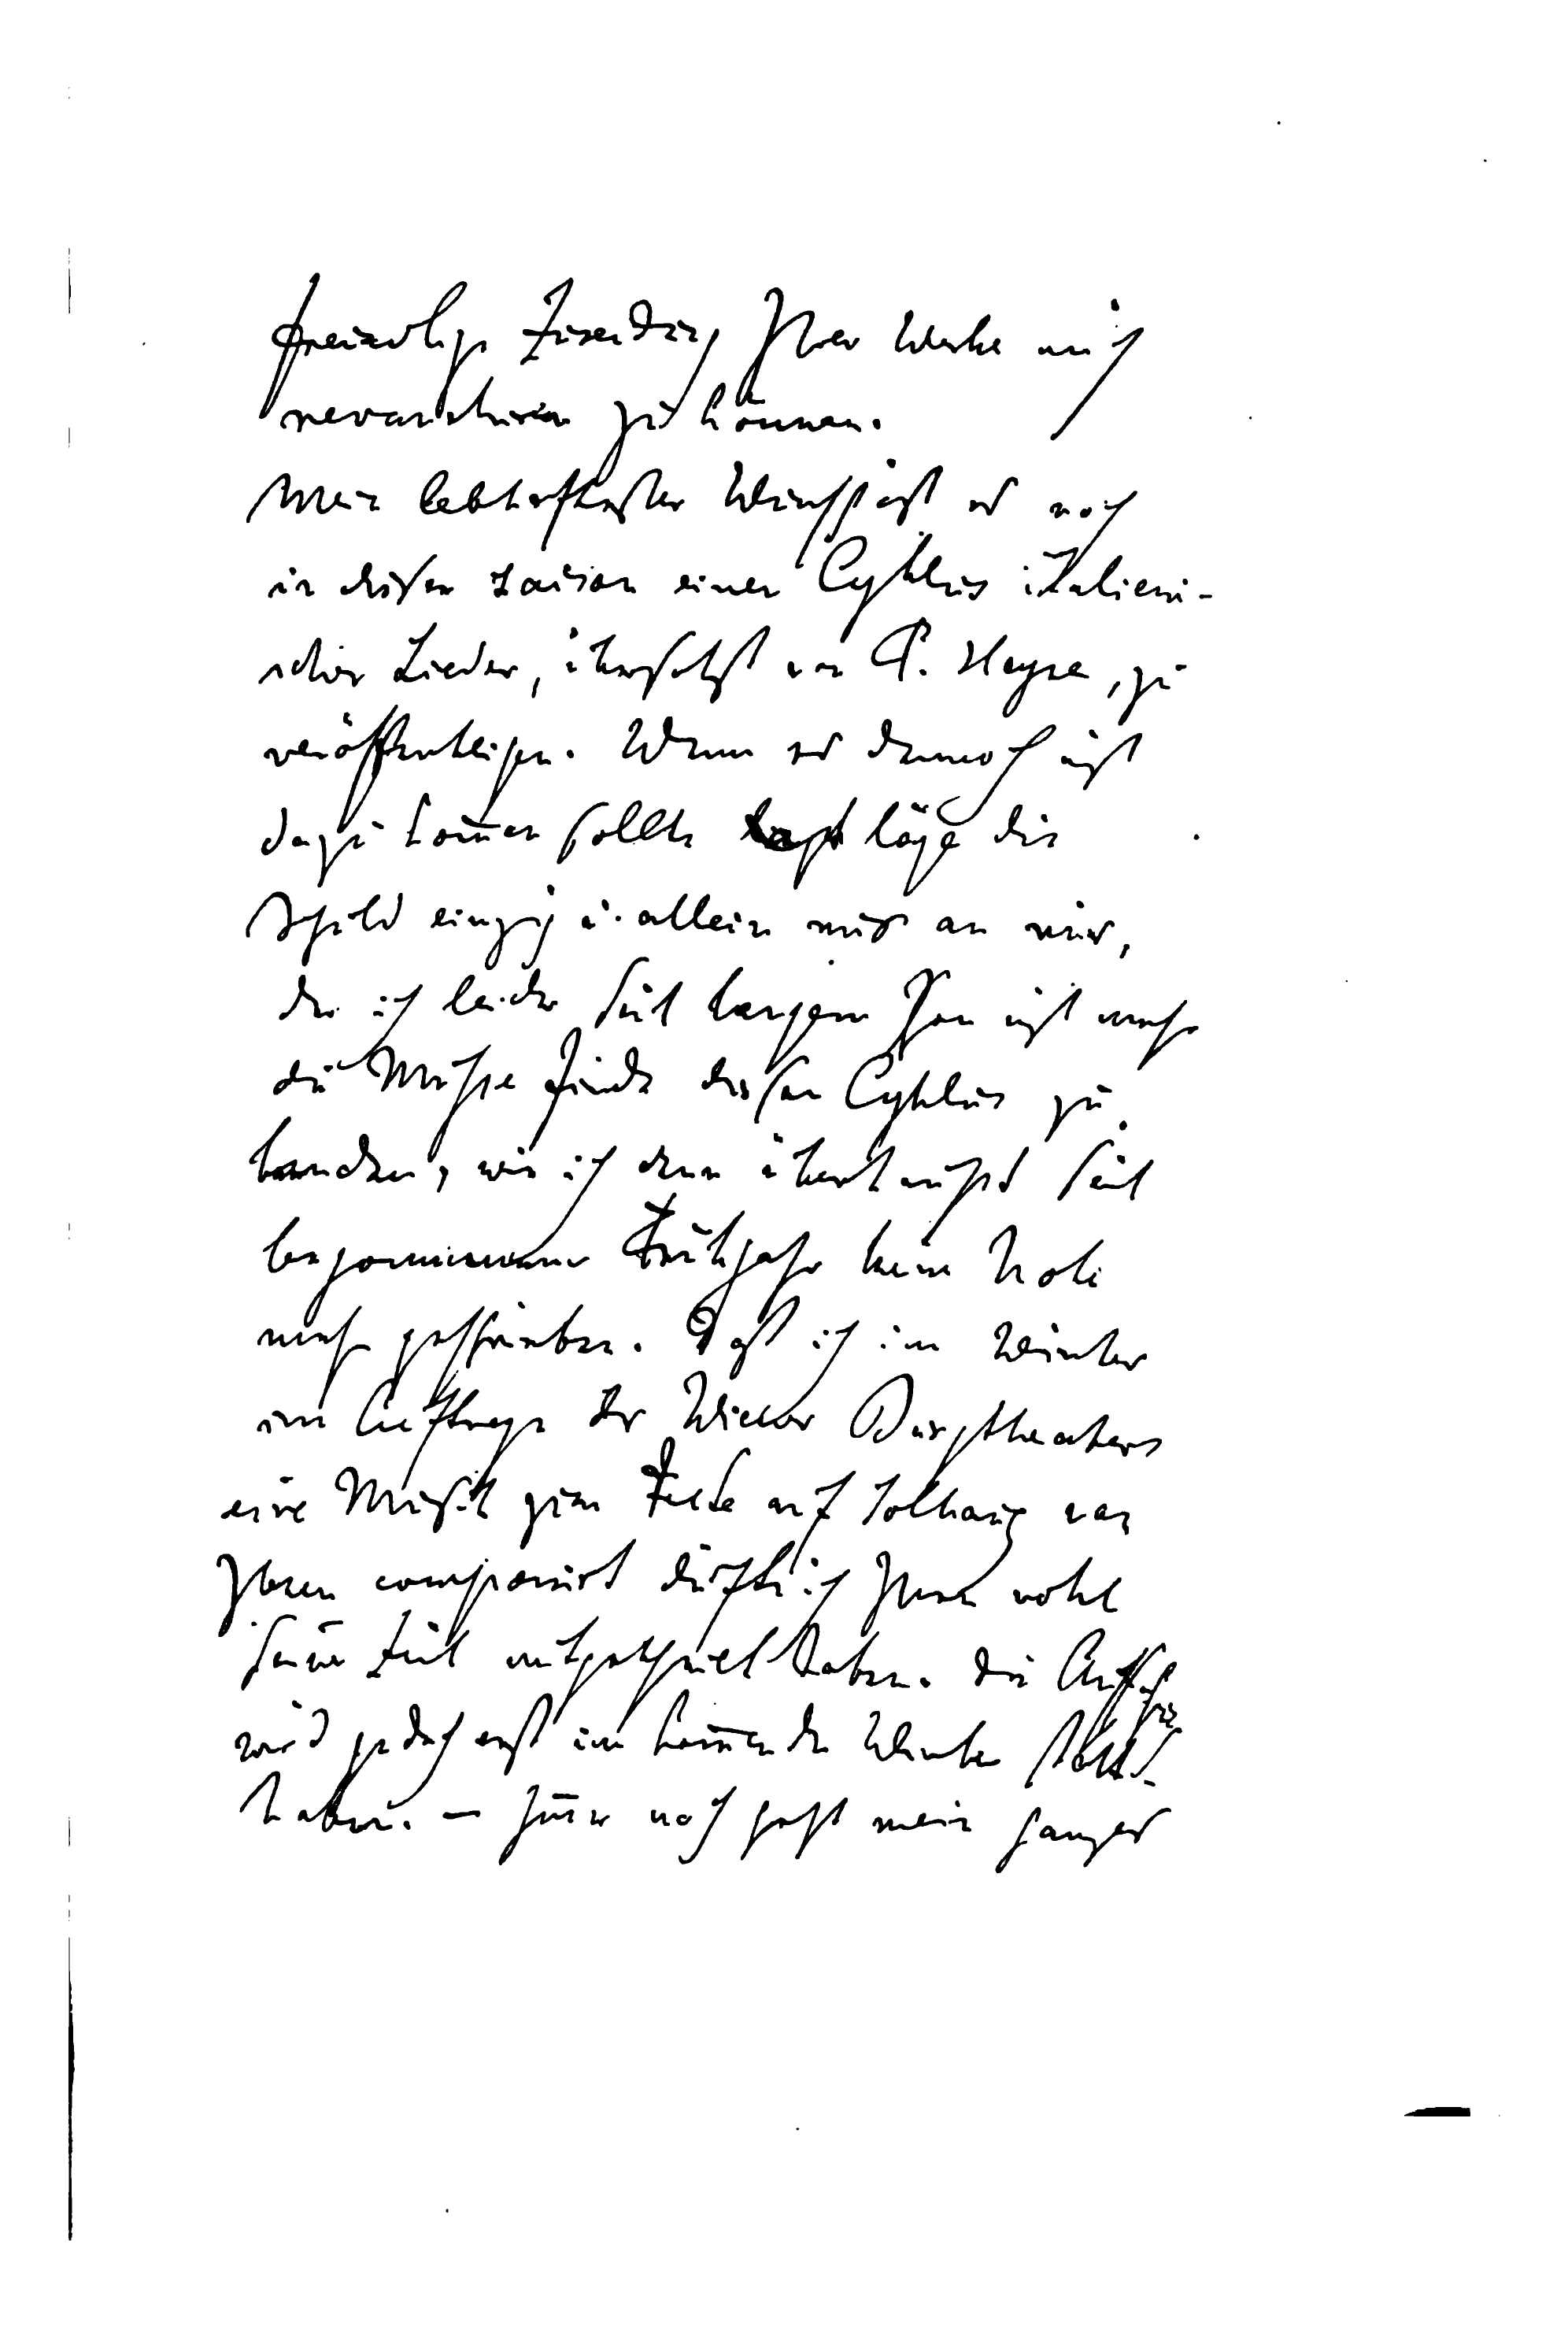 freundliche Zusendung Ihrer Werke mich
revanchiren zu können.
Mein lebhaftester Wunsch ist es noch
in dieser Saison einen Cyklus italieni-
scher Lieder, übersetzt von P. Heyse, zu
veröffentlichen. Wenn es dennoch nicht
dazu kom̅en sollte läge die
Schuld einzig u. allein nur an mir,
da ich leider seit langem schon nicht mehr
die Musse finde diesen Cyklus zu
beenden, wie ich denn überhaupt seit
begonnenem Frühjahr keine Note
mehr geschrieben. Daß ich im Winter
im Auftrage des Wiener Burgtheaters
eine Musik zum Feste auf Solhaug von
Ibsen componirt dürfte ich Ihnen wohl
seiner Zeit mitgetheilt haben. Die Aufführg
wird jedoch erst im kom̅enden Winter statt-
haben. — Im̅er noch geht mein ganzes